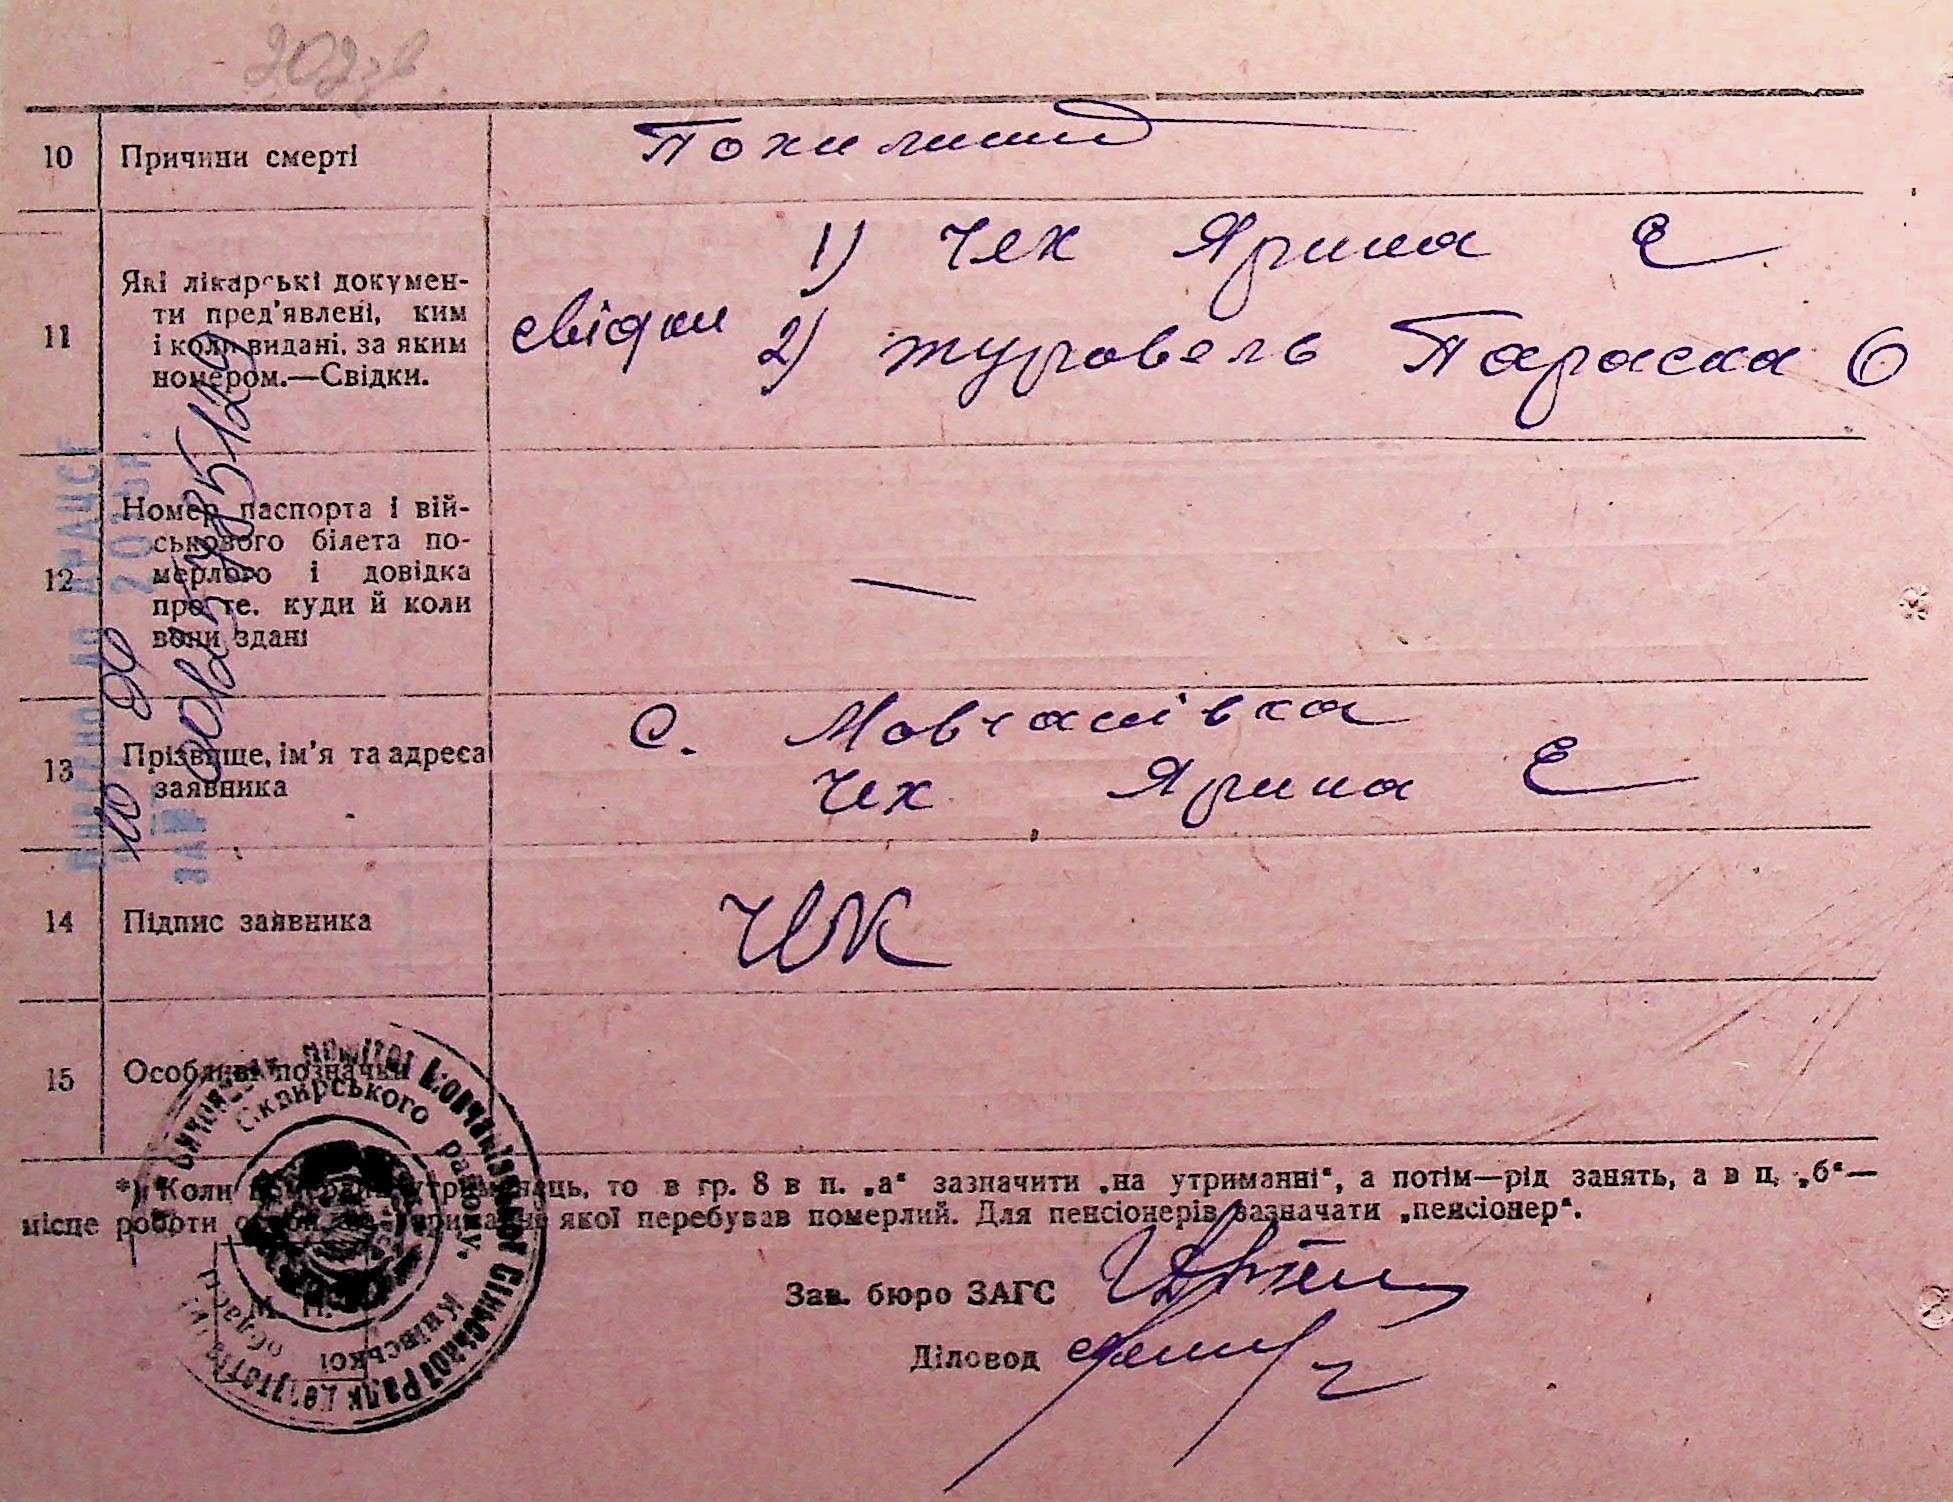 202зв
10 Причини смерті Похилий
11 Які лікарські докумен-
ти пред'явлені, ким
і коли видані, за яким
номером.—Свідки.
свідки 1) Чех Ярина Є
2) Журавель Параска О
12 Номер паспорта і вій-
ськового білета по-
мерлого і довідка
про те, куди й коли
вони здані
—
13 Прізвище, ім'я та адреса
заявника
с. Мовчанівка
Чех Ярина Є
14 Підпис заявника
15 Особливі позначки
*) Коли утриманець, то в гр. 8 в п. „а“ зазначити „на утриманні“, а потім—рід занять, а в п. „б“—
місце роботи якої перебував померлий. Для пенсіонерів зазначати „пенсіонер“.
Зав. бюро ЗАГС
Діловод
Сквирського району, Київської області
М. П.